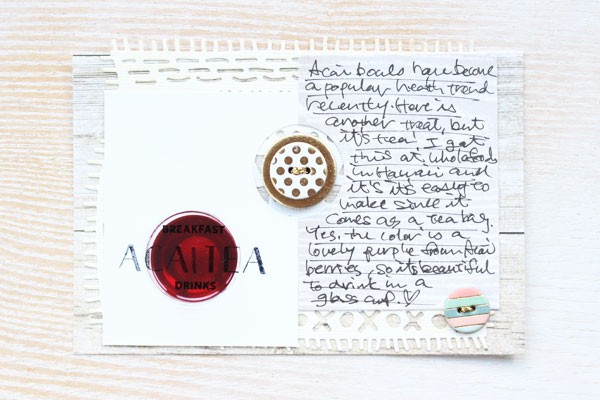 BREAKFAST
ACAI TEA
DRINKS
Acai bowls have become
a popular health trend
recently. Here is
another treat, but
it's tea! I got
this at wholefoods
in Hawaii and
it's its easy to
make since it
comes as a tea bag.
Yes, the color is a
lovely purple from Acai
berries, so its beautiful
to drink in a
glass cup.